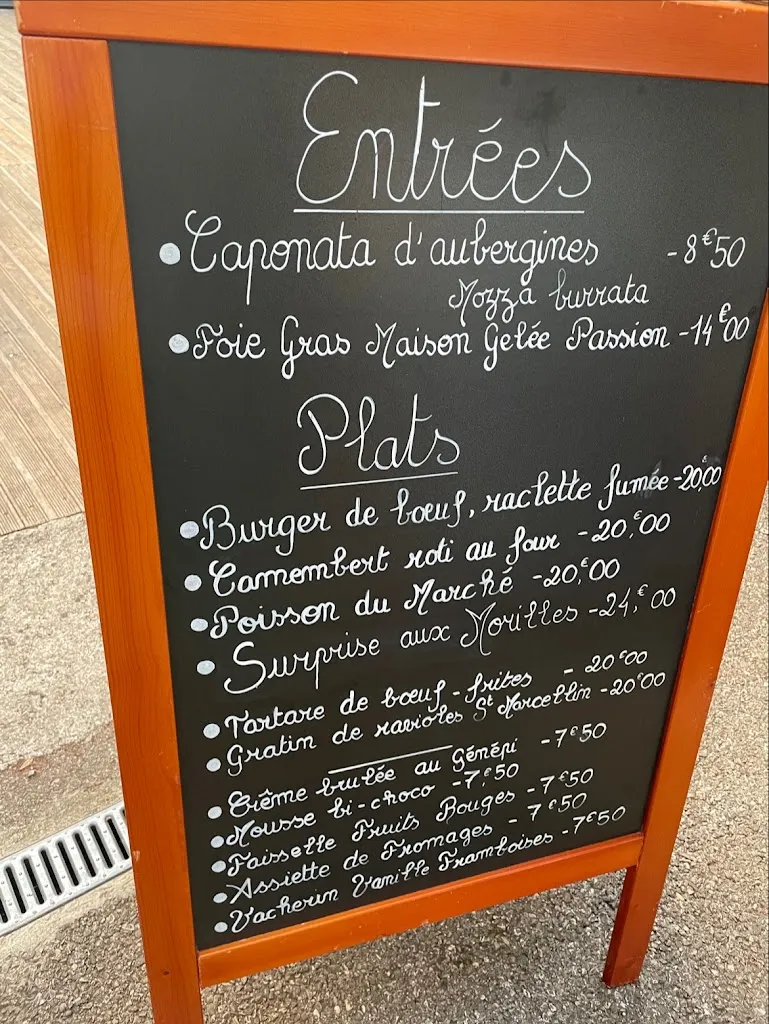 Entrées
• Caponata d'aubergines - 8€50
Mozza burrata
• Foie Gras Maison Gelée Passion - 14€00
Plats
• Burger de bœuf, raclette fumée - 20,€00
• Camembert roti au four - 20,€00
• Poisson du Marché - 20,€00
• Surprise aux Morilles - 24,€00
• Tartare de bœuf - frites - 20€00
• Gratin de ravioles St Marcellin - 20€00
• Crème brulée au génépi - 7€50
• Mousse bi-choco - 7,€50
• Faisselle Fruits Rouges - 7€50
• Assiette de Fromages - 7€50
• Vacherin Vanille Framboises - 7€50